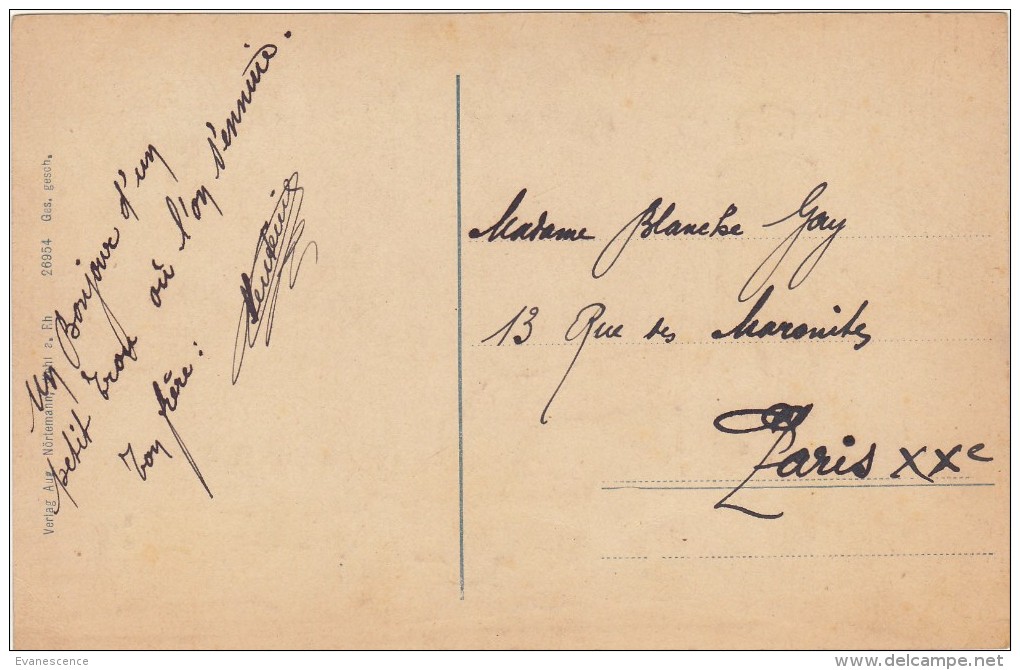 Un Bonjour d'un
petit trou où l'on s'ennuie.
Ton frère:
Madame Blanche Gay
13 Rue des Maronites
Paris XXe
Verlag Aug. Nörtemann, Kehl a. Rh 26954 Ges. gesch.
Evanescence
delcampe.net